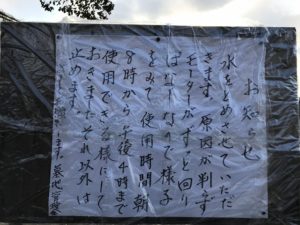 お知らせ
水をとめさせていただ
きます。原因が判らず
モーターがずっと回り
ぱなしなので様子
をみて、使用時間朝
8時から午後4時まで
使用できる様にして
おきます。それ以外は
止めます。
します。墓地管理